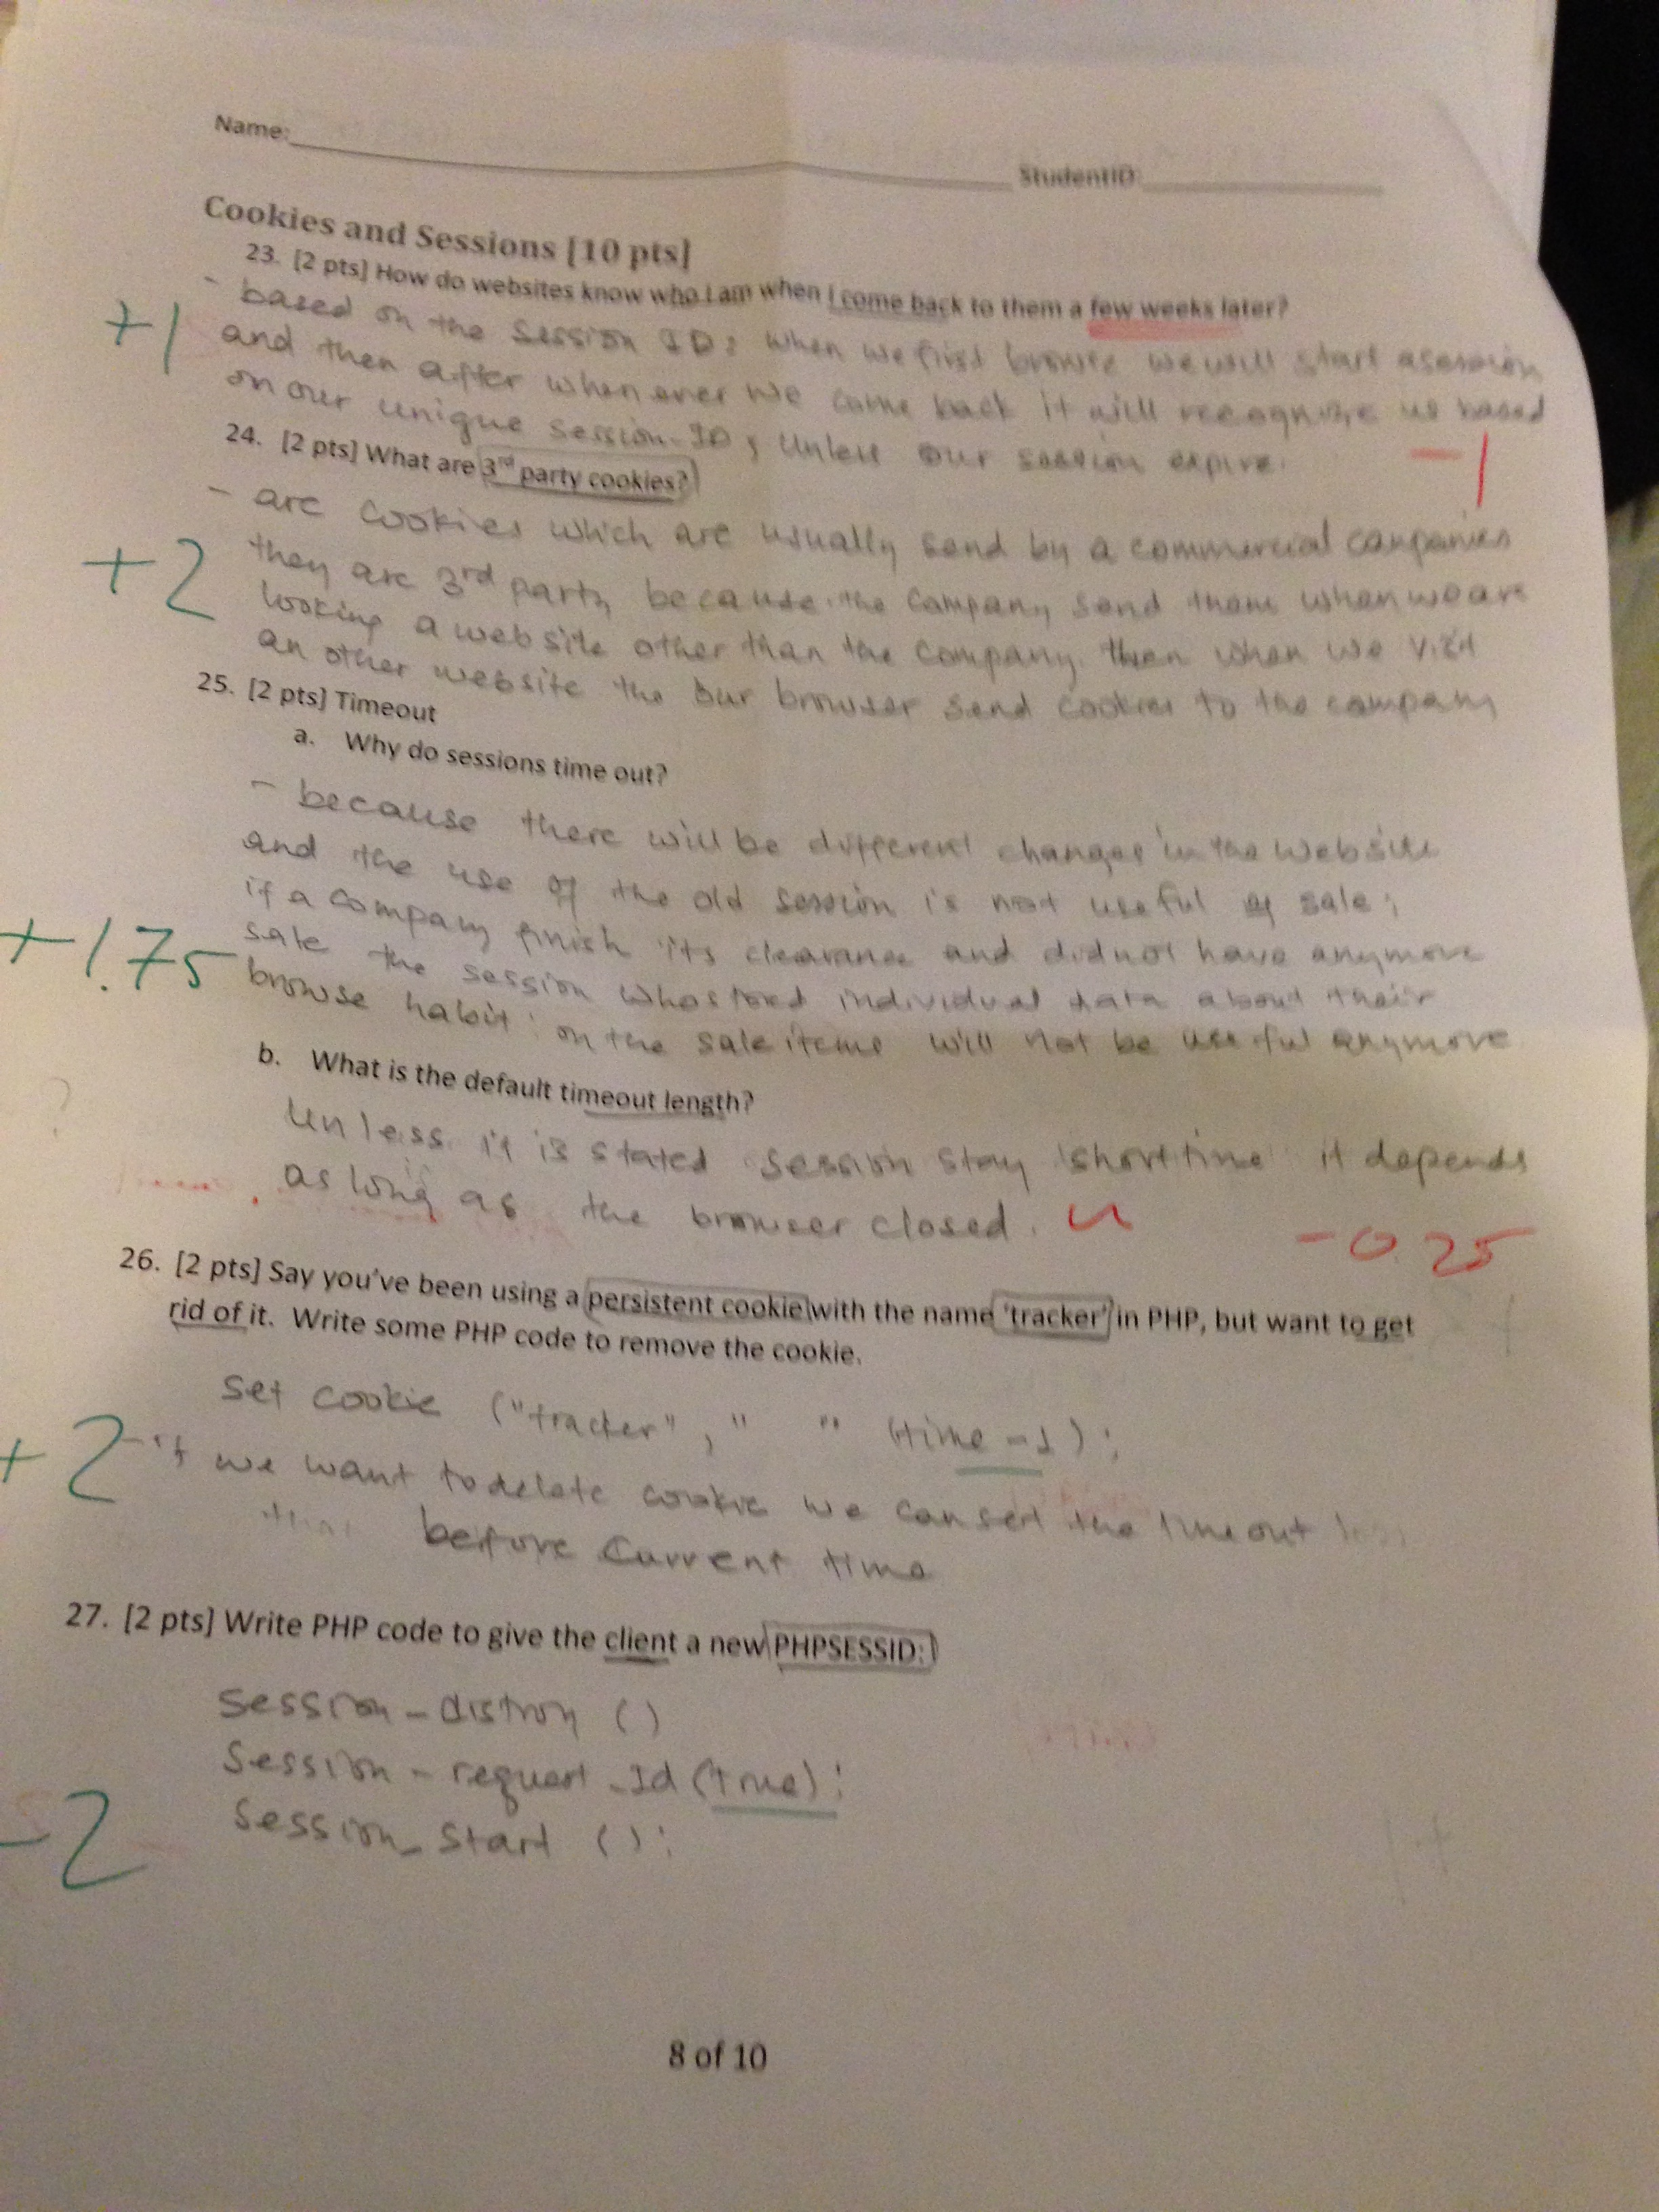 Name:
StudentID:
Cookies and Sessions [10 pts]
23. [2 pts] How do websites know who I am when I come back to them a few weeks later?
+1
- based on the Session ID: when we first browse we will start a session
and then after when ever we come back it will recognize us based
on our unique session ID, unless our session expire.
-1
24. [2 pts] What are 3rd party cookies?
- are cookies which are usually send by a commercial companies
+2
they are 3rd party because the company send them when we are
looking a website other than the company. then when we visit
an other website the our browser send cookies to the company
25. [2 pts] Timeout
a. Why do sessions time out?
- because there will be different changes in the website
and the use of the old session is not useful sale;
if a company finish its clearance and did not have anymore
+1.75
sale the session individual data about their
browse habit on the sale items will not be useful anymore
b. What is the default timeout length?
?
unless it is stated session stay short time it depends
as long as the browser closed.
-0.25
26. [2 pts] Say you've been using a persistent cookie with the name 'tracker' in PHP, but want to get
rid of it. Write some PHP code to remove the cookie.
Set cookie ("tracker", " " (time -1);
+2
- if we want to delete cookie we can set the timeout
that before current time
27. [2 pts] Write PHP code to give the client a new PHPSESSID:
session - distroy ()
Session - request _Id (true);
-2
Session_Start ();
8 of 10